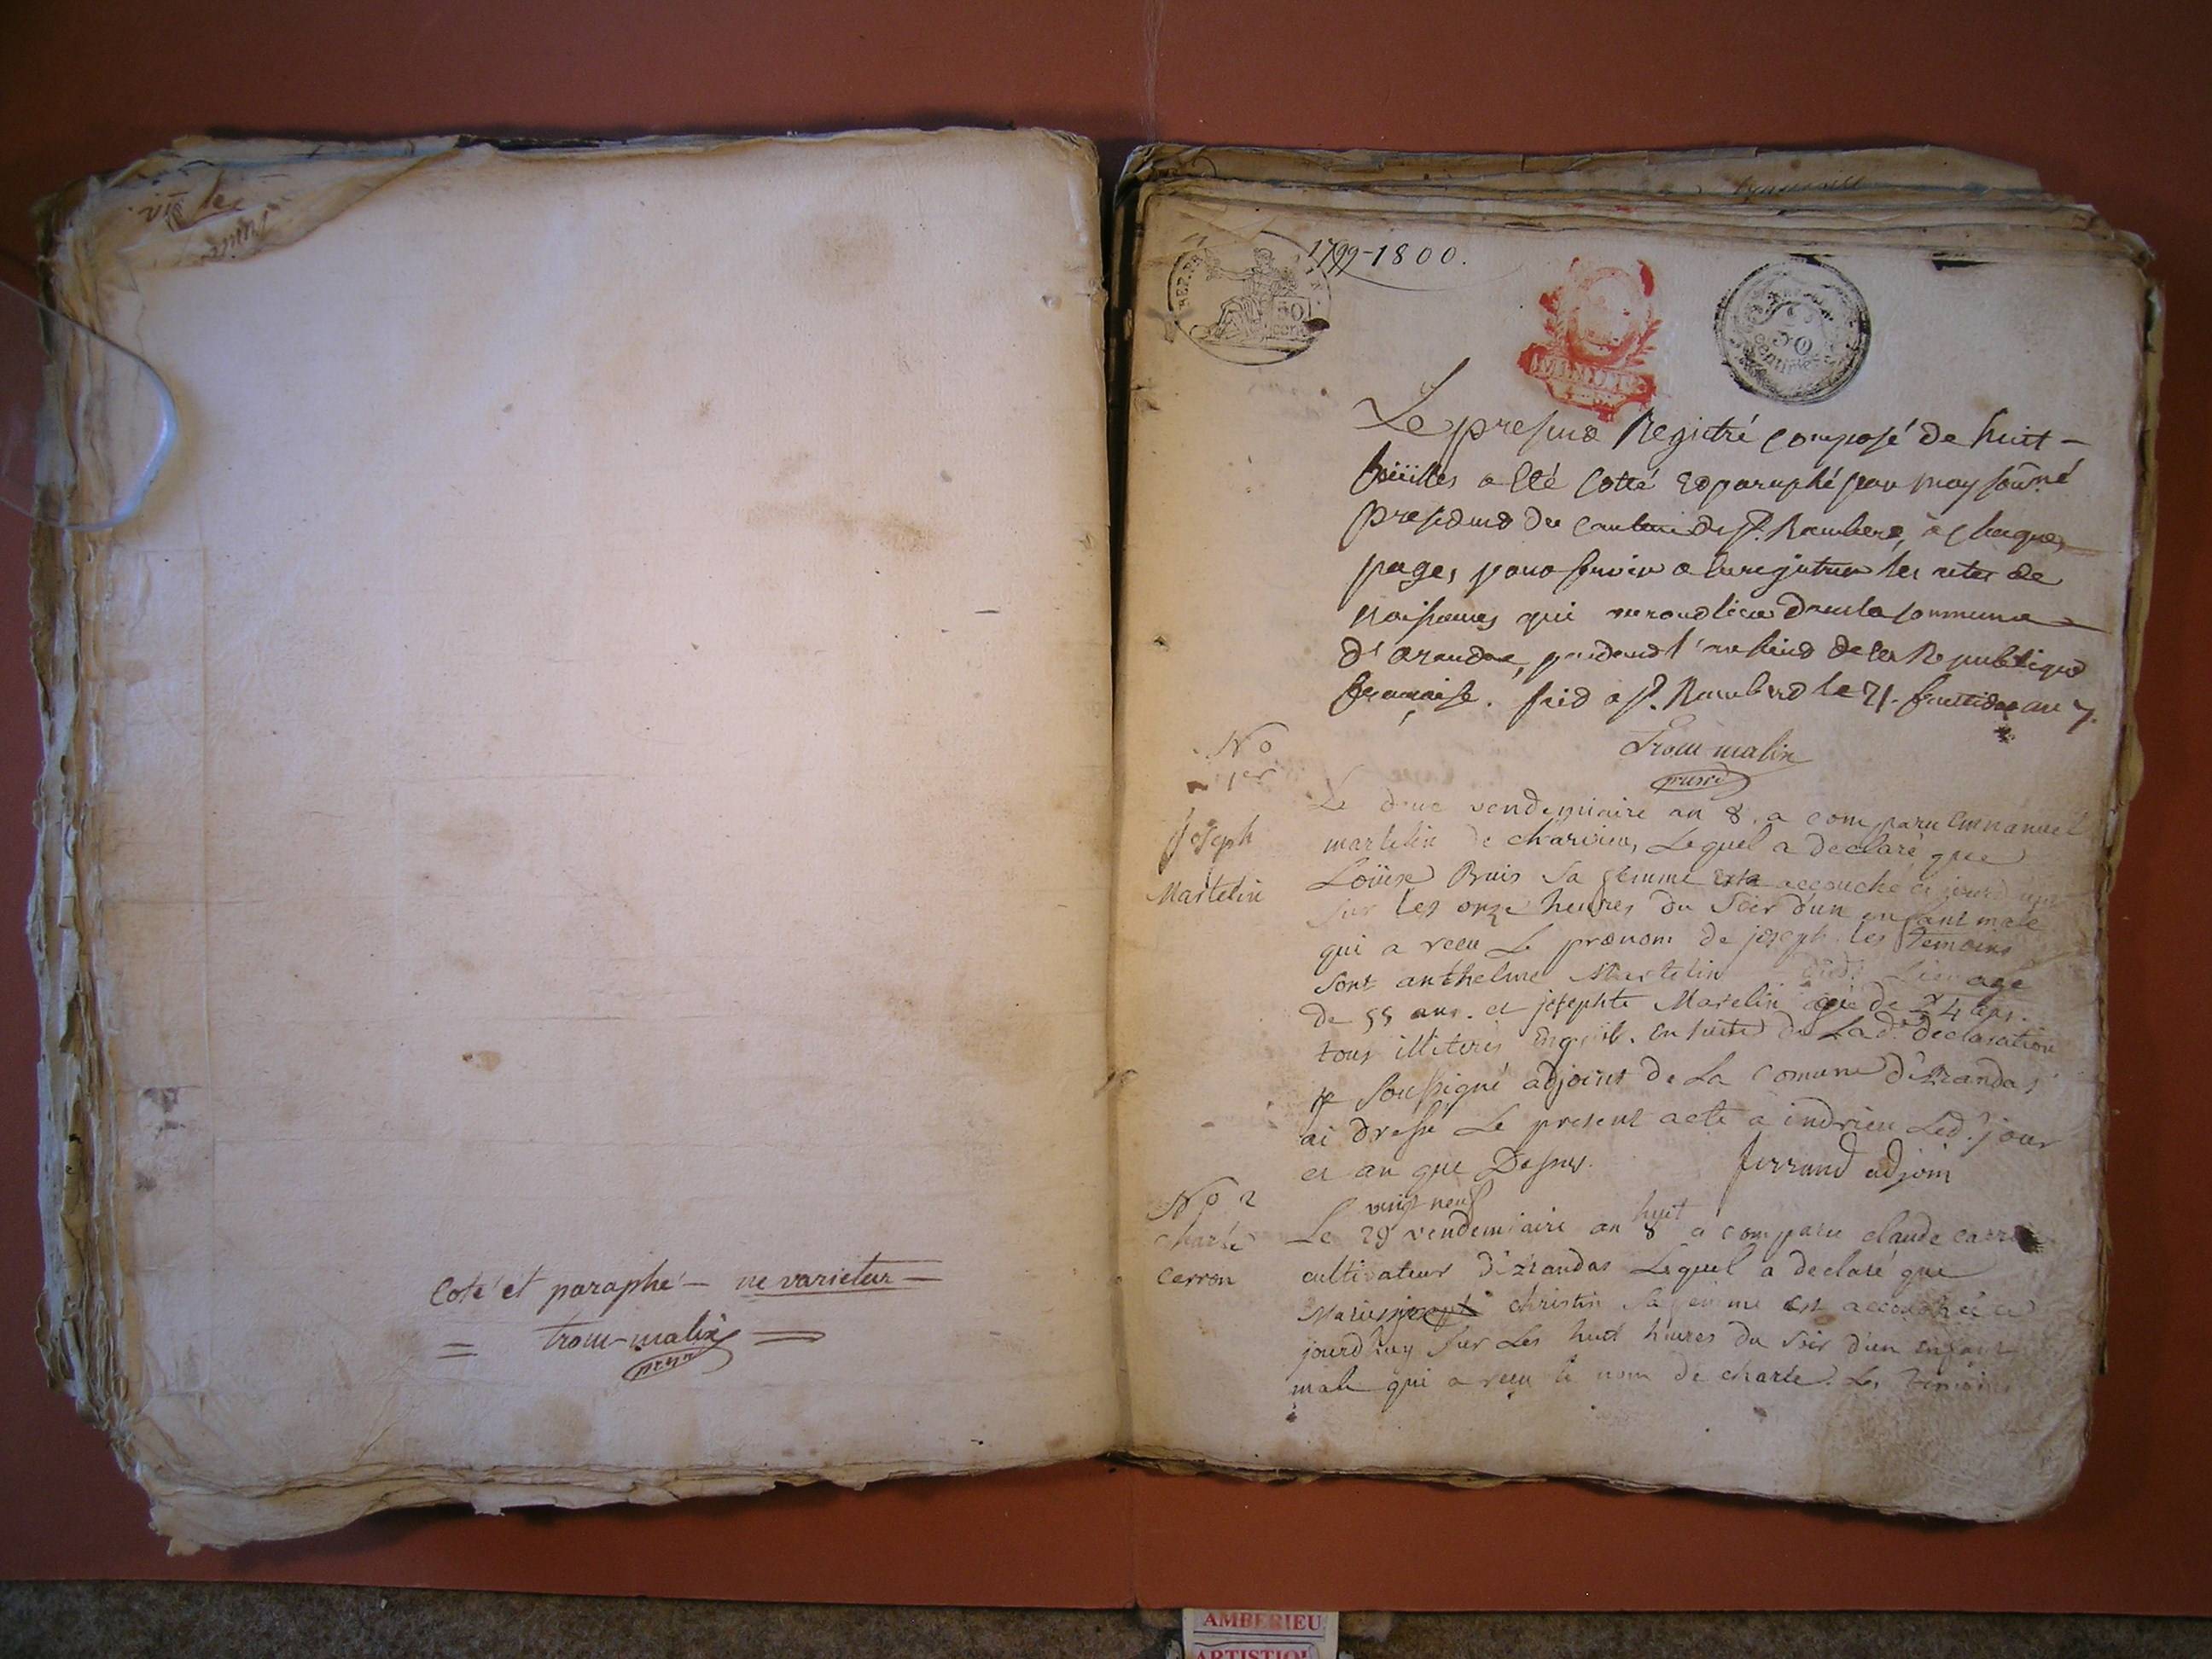 Coté et paraphé - ne varietur -
= trou-malin =
1799-1800.
REP. FRA
50
cent
50
centimes
Le present Registre composé de huit -
feüilles a eté cotté et paraphé par moy soussigné
president du canton de St. Rambert, à chaques
pages pour servir a enregistrer les actes de
naissances qui auront lieu dans la commune
d'arandas, pendant l'an huit de la Republique
francaise. fait a St. Rambert le 21. fructidor an 7.
trou-malin
No
1er
joseph
Martelin
Le vendemiaire an 8. a comparu Emmanuel
martelin de Lequel a declaré que
Loüise Bruis sa femme est accouché ce jourd'uy
sur les onze heures du soir d'un enfant male
qui a recu Le prenom de joseph. les temoins
sont anthelme Martelin age
de 55 ans. et josephte Marelin agée de 24 ans.
tous illiterés en suite de Lad. declaration
je soussigné adjoint de La comune d'Arandas
ai dressé Le present acte a indrieu Led. jour
et an que Dessus. ferrand adjoin
No 2
charle
carron
vingt neuf huit
Le 29 vendemiaire an 8 a comparu claude carron
cultivateur d'Arandas Lequel a declaré que
Marie christin sa femme est accouchée ce
jourd'huy sur Les huit heures du soir d'un enfant
male qui a recu le nom de charle. Les temoins
AMBERIEU